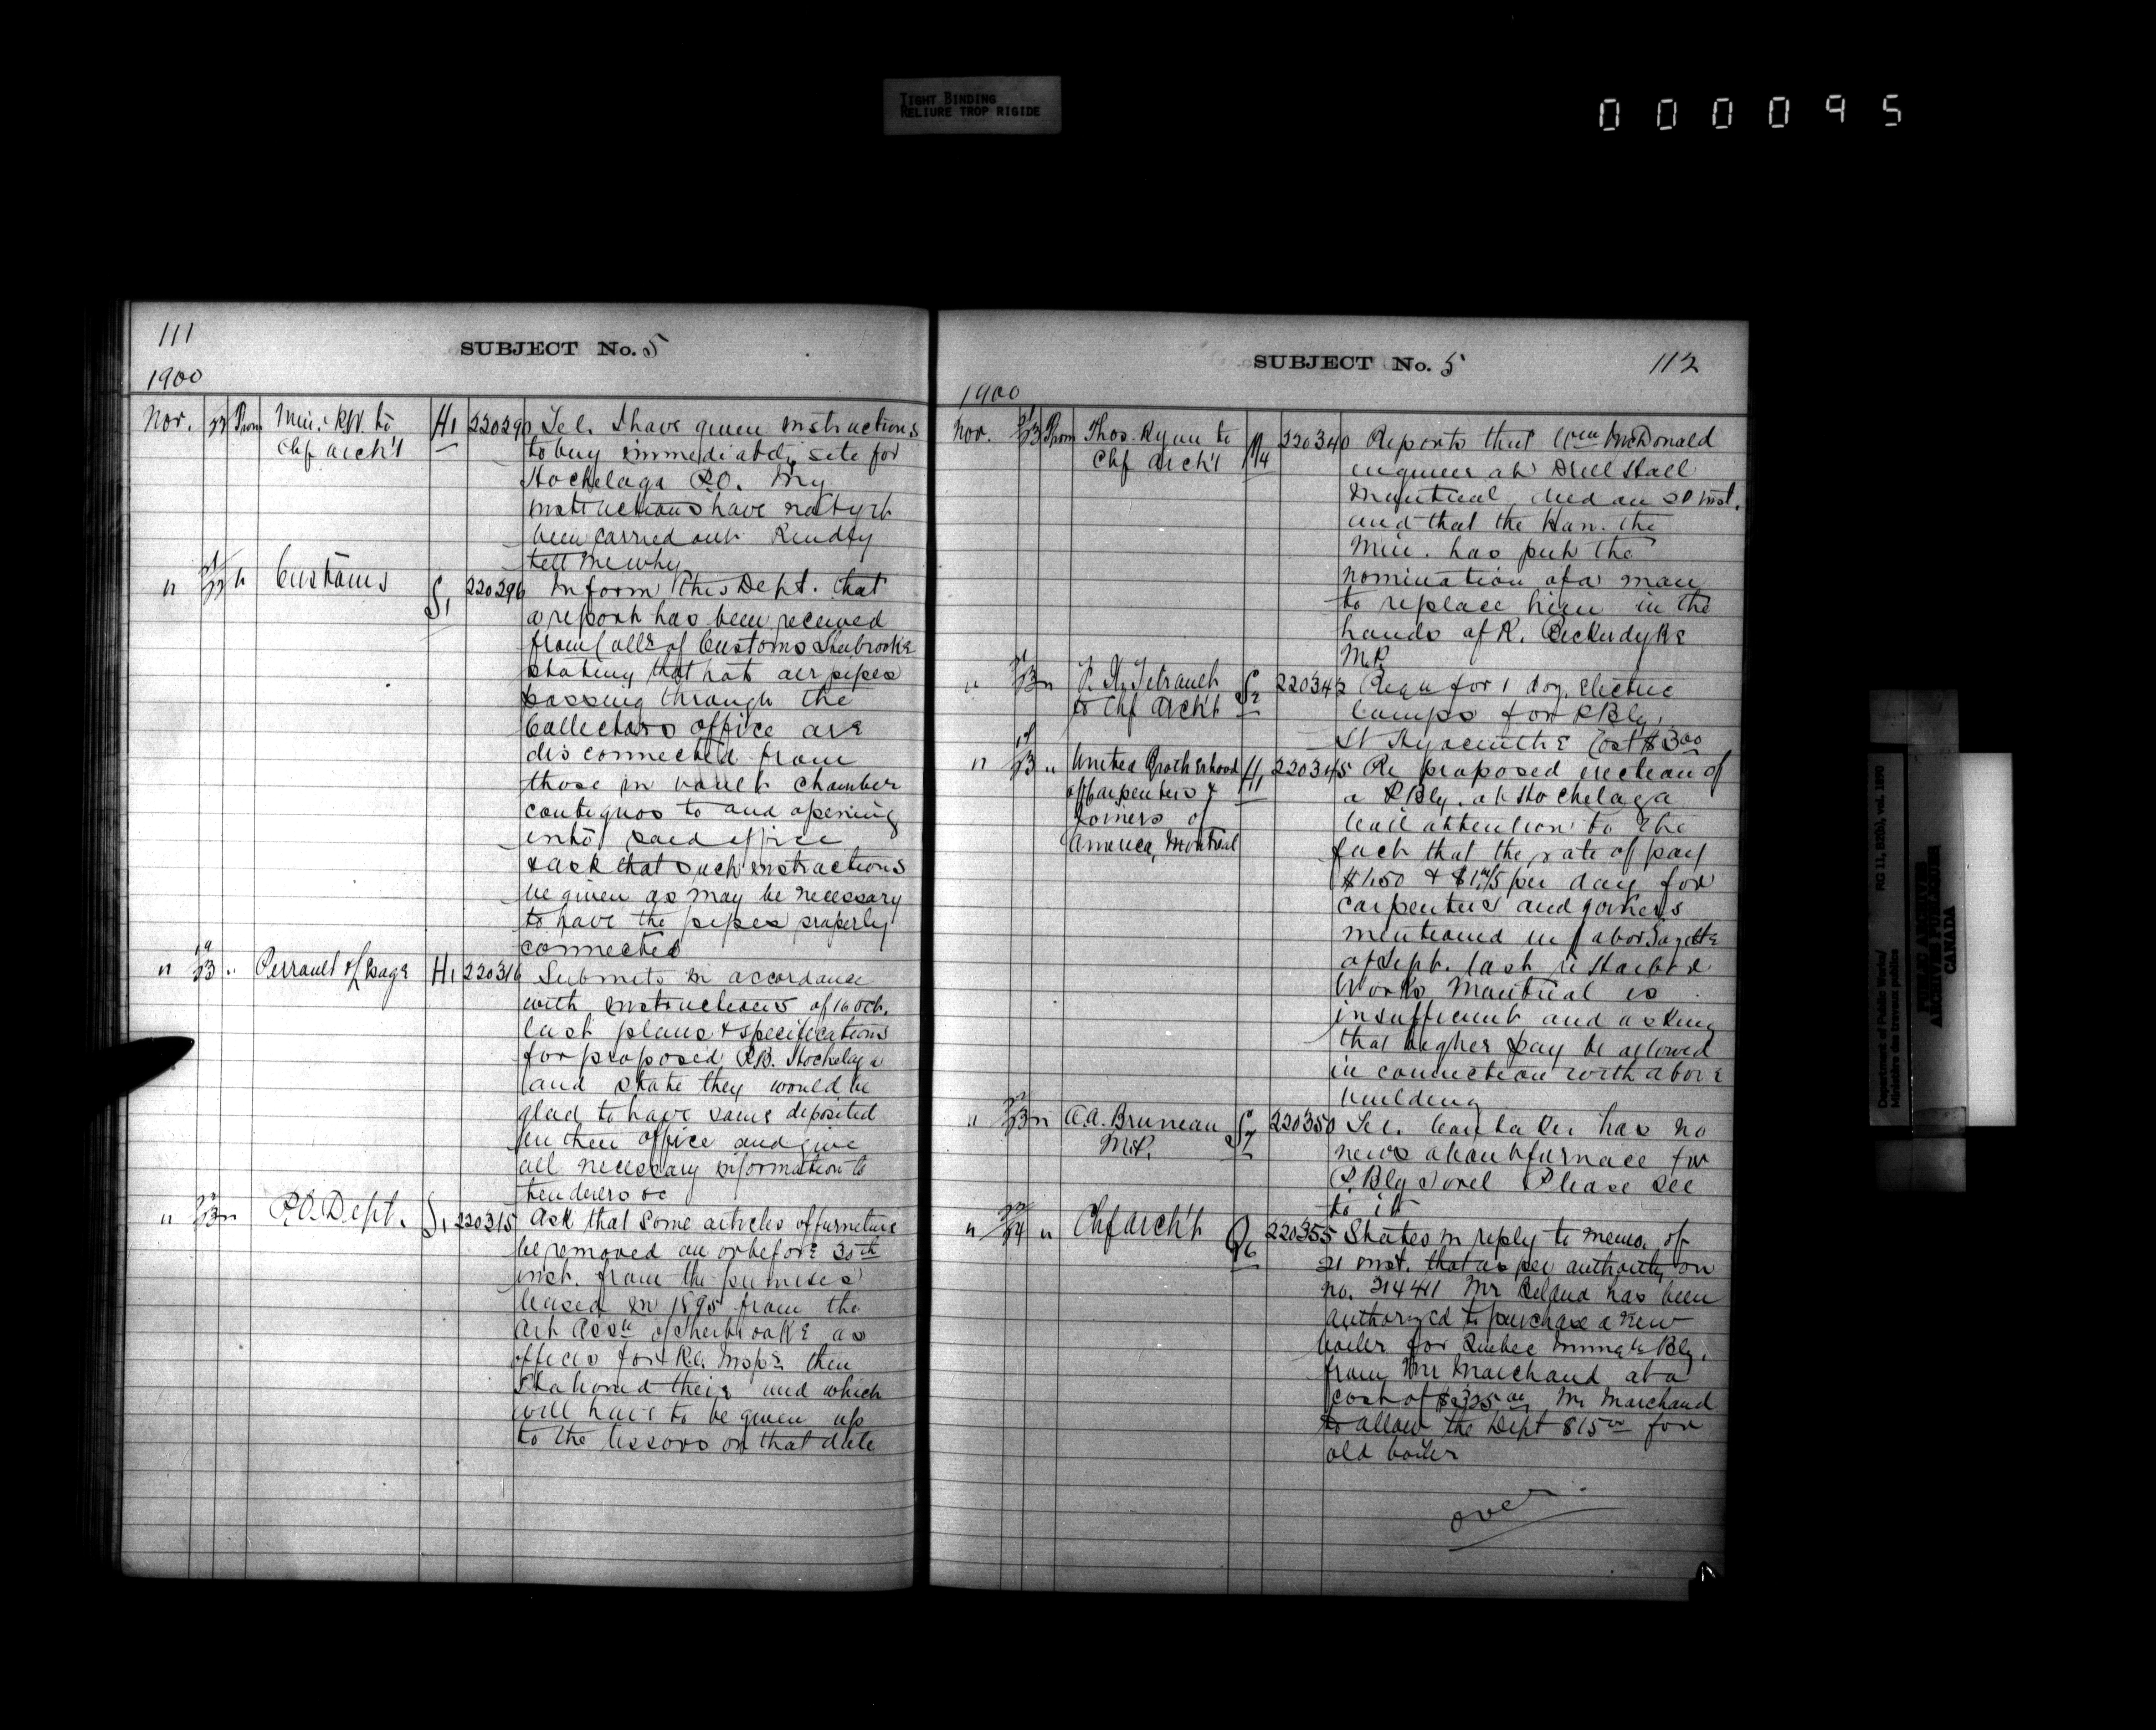 TIGHT BINDING
RELIURE TROP RIGIDE
000095
111
SUBJECT No. 5
1900
Nov. 22 From Min. P.W. to H1 220290 Tel. I have given instructions
Chf Arch't to buy immediately site for
Hochelaga P.O. My
instructions have not yet
been carried out. Kindly
tell me why
" 21/22 " Customs S1 220296 Inform this Dept. that
a report has been received
from Collr of Customs Sherbrooke
stating that hot air pipes
passing through the
Collectors office are
disconnected from
those in vault chamber
contiguos to and opening
into said office
& ask that such instructions
be given as may be necessary
to have the pipes properly
connected
" 19/23 " Perrault & Lesage H1 220316 Submits in accordance
with instructions of 16 Oct.
last plans & specifications
for proposed P.B. Hochelaga
and state they would be
glad to have same deposited
in their office and give
all necessary information to
tenderers &c
" 23 " P.O. Dept. S1 220315 Ask that some articles of furniture
be removed on or before 30th
inst. from the premises
leased in 1895 from the
Art Assn of Sherbrooke as
offices for P.O. Inspr then
stationed their and which
will have to be given up
to the lessors on that date
SUBJECT No. 5
112
1900
Nov. 21/23 From Thos. Ryan to M4 220340 Reports that Wm McDonald
Chf Arch't engineer at Drill Hall
Montreal died on 20 inst.
and that the Hon. the
Min. has put the
nomination of a man
to replace him in the
hands of R. Bickerdyke
M.P.
" 21/23 " P. X. Tetrault S2 220342 Requ for 1 doz. electric
to Chf Arch't lamps for P Blg.
St Hyacinthe Cost $3.00
" 23 " United Brotherhood H1 220345 Re proposed erection of
of Carpenters & a P Blg. at Hochelaga
Joiners of call attention to the
America, Montreal fact that the rate of pay
$1.50 & $1.75 per day for
carpenters and joiners
mentioned in Labor Gazette
of Sept. last re Harbor
Works Montreal is
insufficient and asking
that higher pay be allowed
in connection with above
building
" 23 " A.A. Bruneau S7 220350 Tel. Contactor has no
M.P. news about furnace for
P. Blg Sorel Please see
to it
" 23/24 " Chf Arch't Q6 220355 States in reply to memo. of
21 inst. that as per authority on
no. 214411 Mr Beland has been
authorized to purchase a new
boiler for Quebec Immgtn Blg.
from Mr Marchand at a
cost of $325.00 Mr Marchand
to allow the Dept $15.00 for
old boiler
over
Department of Public Works/
Ministère des travaux publics
RG 11, B2(b), vol. 1870
PUBLIC ARCHIVES
ARCHIVES PUBLIQUES
CANADA